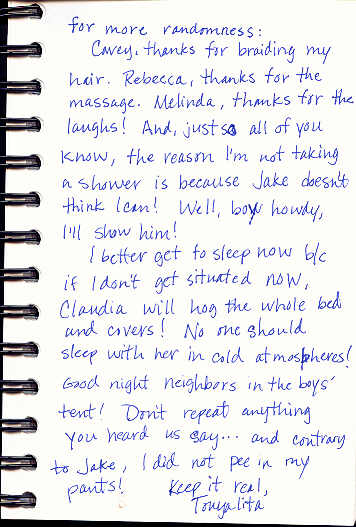 for more randomness:
Carey, thanks for braiding my
hair. Rebecca, thanks for the
massage. Melinda, thanks for the
laughs! And, just so all of you
know, the reason I'm not taking
a shower is because Jake doesn't
think I can! Well, boy howdy,
I'll show him!
I better get to sleep now b/c
if I don't get situated now,
Claudia will hog the whole bed
and covers! No one should
sleep with her in cold atmospheres!
Good night neighbors in the boys'
tent! Don't repeat anything
you heard us say... and contrary
to Jake, I did not pee in my
pants! Keep it real,
Tonyalita